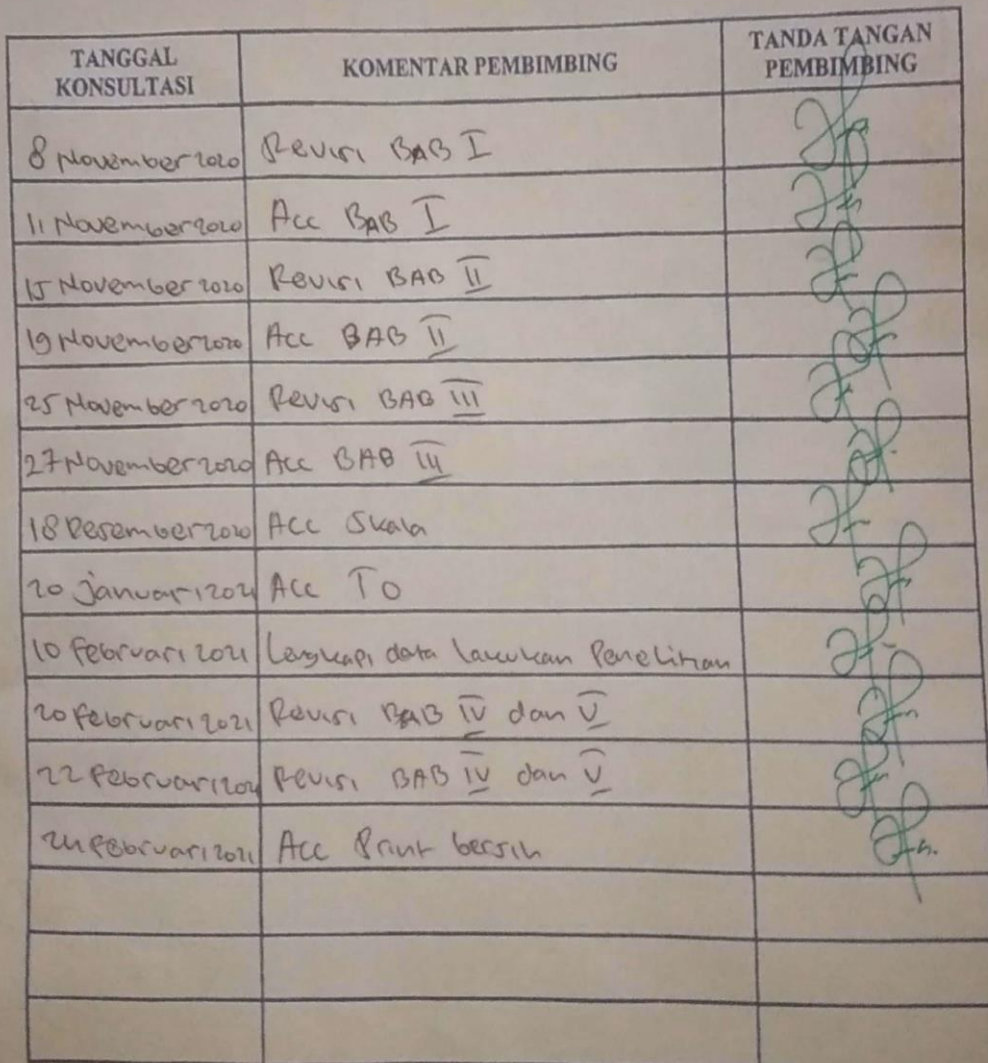 TANGGAL KONSULTASI KOMENTAR PEMBIMBING TANDA TANGAN PEMBIMBING
8 November 2020 Revisi BAB I
11 November 2020 Acc BAB I
15 November 2020 Revisi BAB II
19 November 2020 Acc BAB II
25 November 2020 Revisi BAB III
27 November 2020 Acc BAB III
18 Desember 2020 Acc Skala
20 Januari 2021 Acc TO
10 Februari 2021 Lengkapi data lakukan Penelitian
20 Februari 2021 Revisi BAB IV dan V
22 Februari 2021 Revisi BAB IV dan V
24 Februari 2021 Acc Print bersih